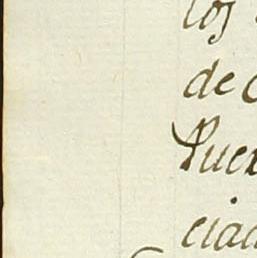 los
de c
Puer
ciad